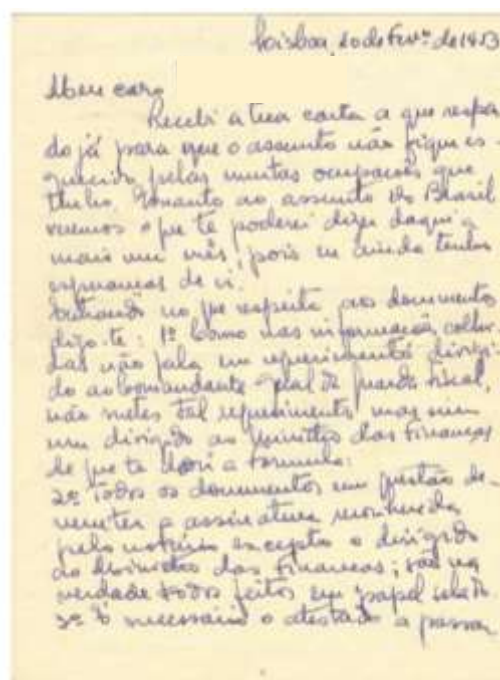 Lisboa, 20 de Fev.º de 1953
Meu caro
Recebi a tua carta a que respon
do já para que o assunto não fique es-
quecido pelas muitas ocupações que
tenho. Quanto ao assunto do Brasil
veremos o que te poderei dizer daqui a
mais um mês, pois eu ainda tenho
esperanças de ir.
Entrando no que respeita aos documentos
digo-te: 1º Como nas informações colhi-
das não fala em requerimento dirigi
do ao Comandante Geral da Guarda Fiscal,
não metes tal requerimento mas sim
um dirigido ao Ministro das Finanças
de que te darei a formula:
2º Todos os documentos em questão de-
vem ter a assinatura reconhecida
pelo notário excepto o dirigido
ao Ministro das Finanças; são na
verdade todos feitos em papel selado
3º É necessário o atestado a passar